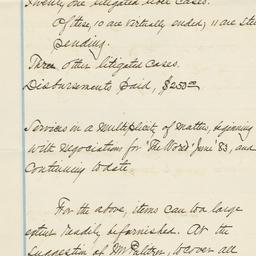 Twenty one litigated libel cases.
Of these, 10 are virtually ended; 11 are still
pending.
Three other litigated cases.
Disbursements paid, $250.00
Services in a multiplicity of matters, beginning
with negociations for "The World" June '83, and
continuing to date
For the above, items can to a large
extent readily be furnished. At the
suggestion of Mr Pulitzer, to cover all